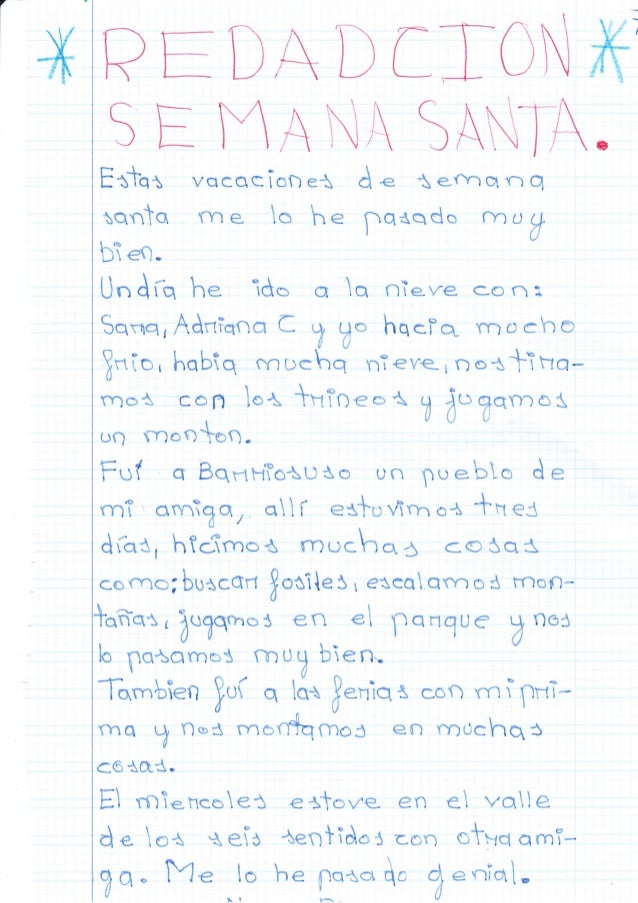 REDADCION
SEMANA SANTA.
Estas vacaciones de semana
santa me lo he pasado muy
bien.
Undía he ido a la nieve con:
Sara, Adriana C y yo hacia mocho
frio, habia mucha nieve, nos tira-
mos con los trineos y jugamos
un monton.
Fuí a Barriosuso un pueblo de
mi amiga, allí estuvimos tres
días, hicimos muchas cosas
como: buscar fosiles, escalamos mon-
tañas, jugamos en el parque y nos
lo pasamos muy bien.
Tambien fuí a las ferias con mi pri-
ma y nos montamos en muchas
cosas.
El miercoles estove en el valle
de los seis sentidos con otra ami-
ga. Me lo he pasado genial.